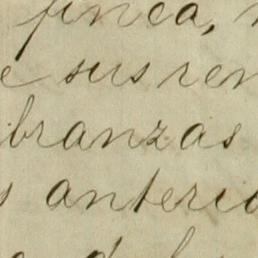 finca,
e sus ren
branzas
s anterio